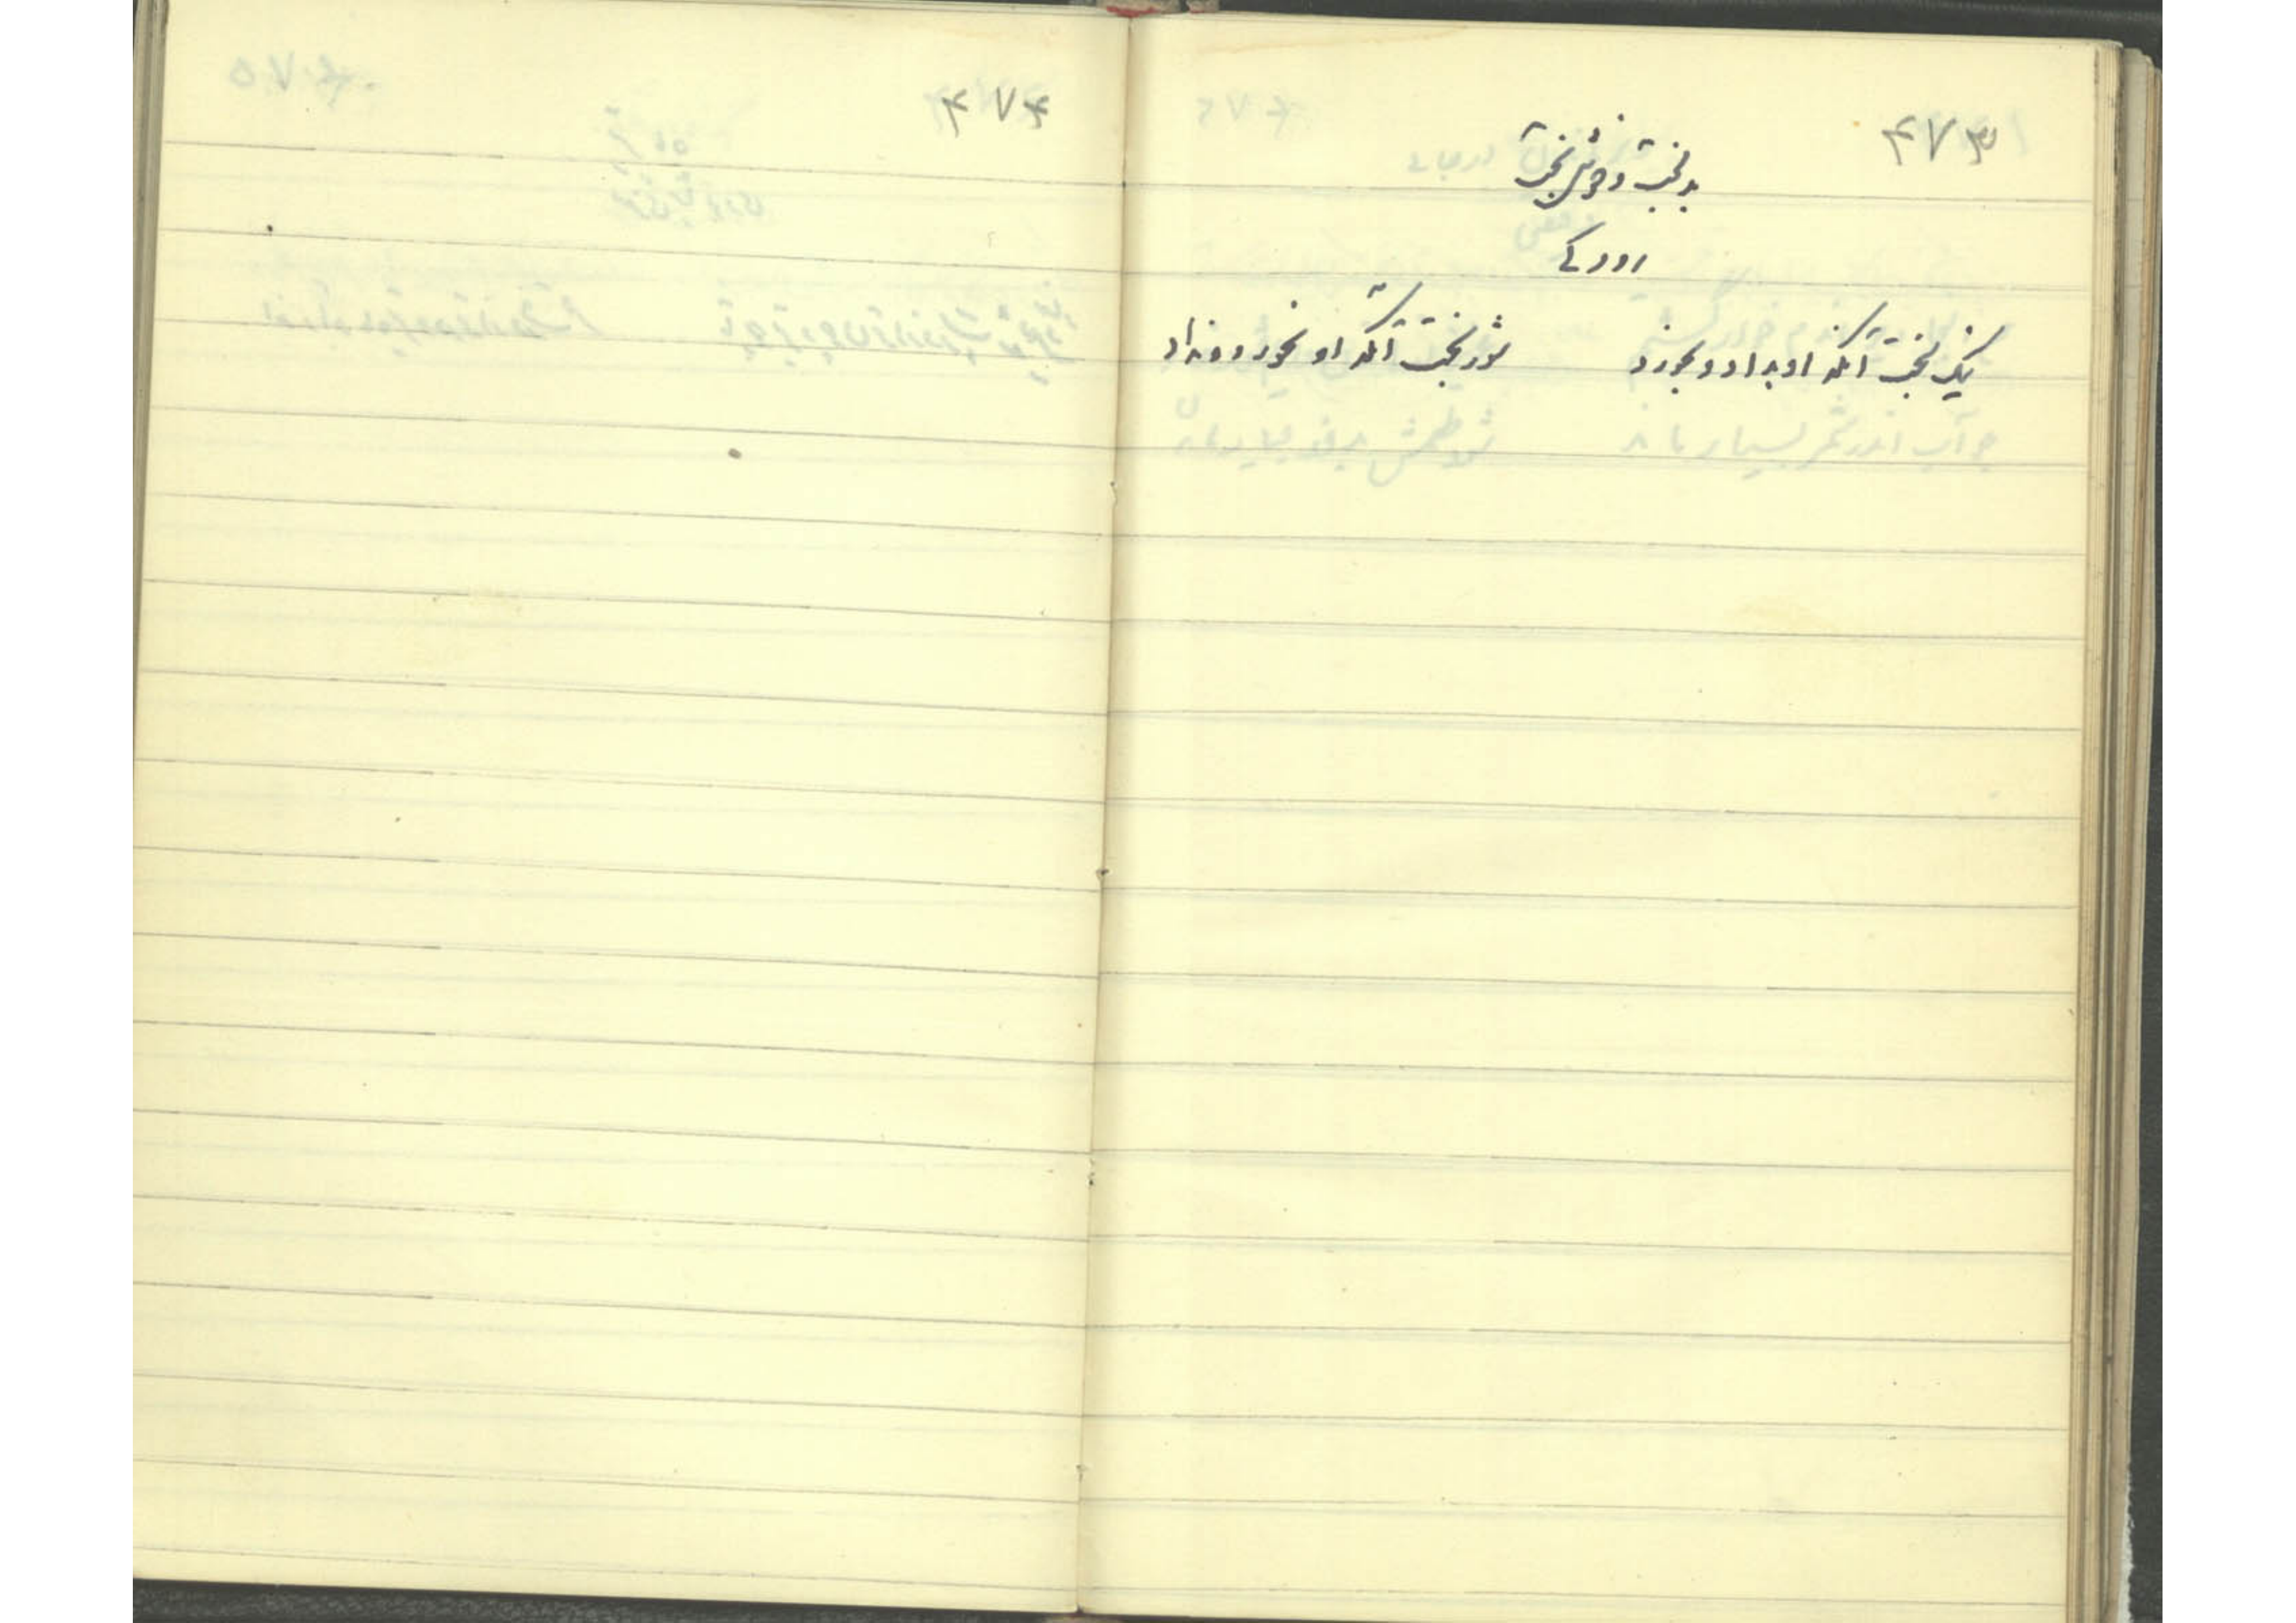 ۴۷۳
بدبخت و خوشبخت
رودکے
نیک بخت آنکه او بداد و بخورد
شوربخت آنکه او نخورد و نداد
۴۷۴